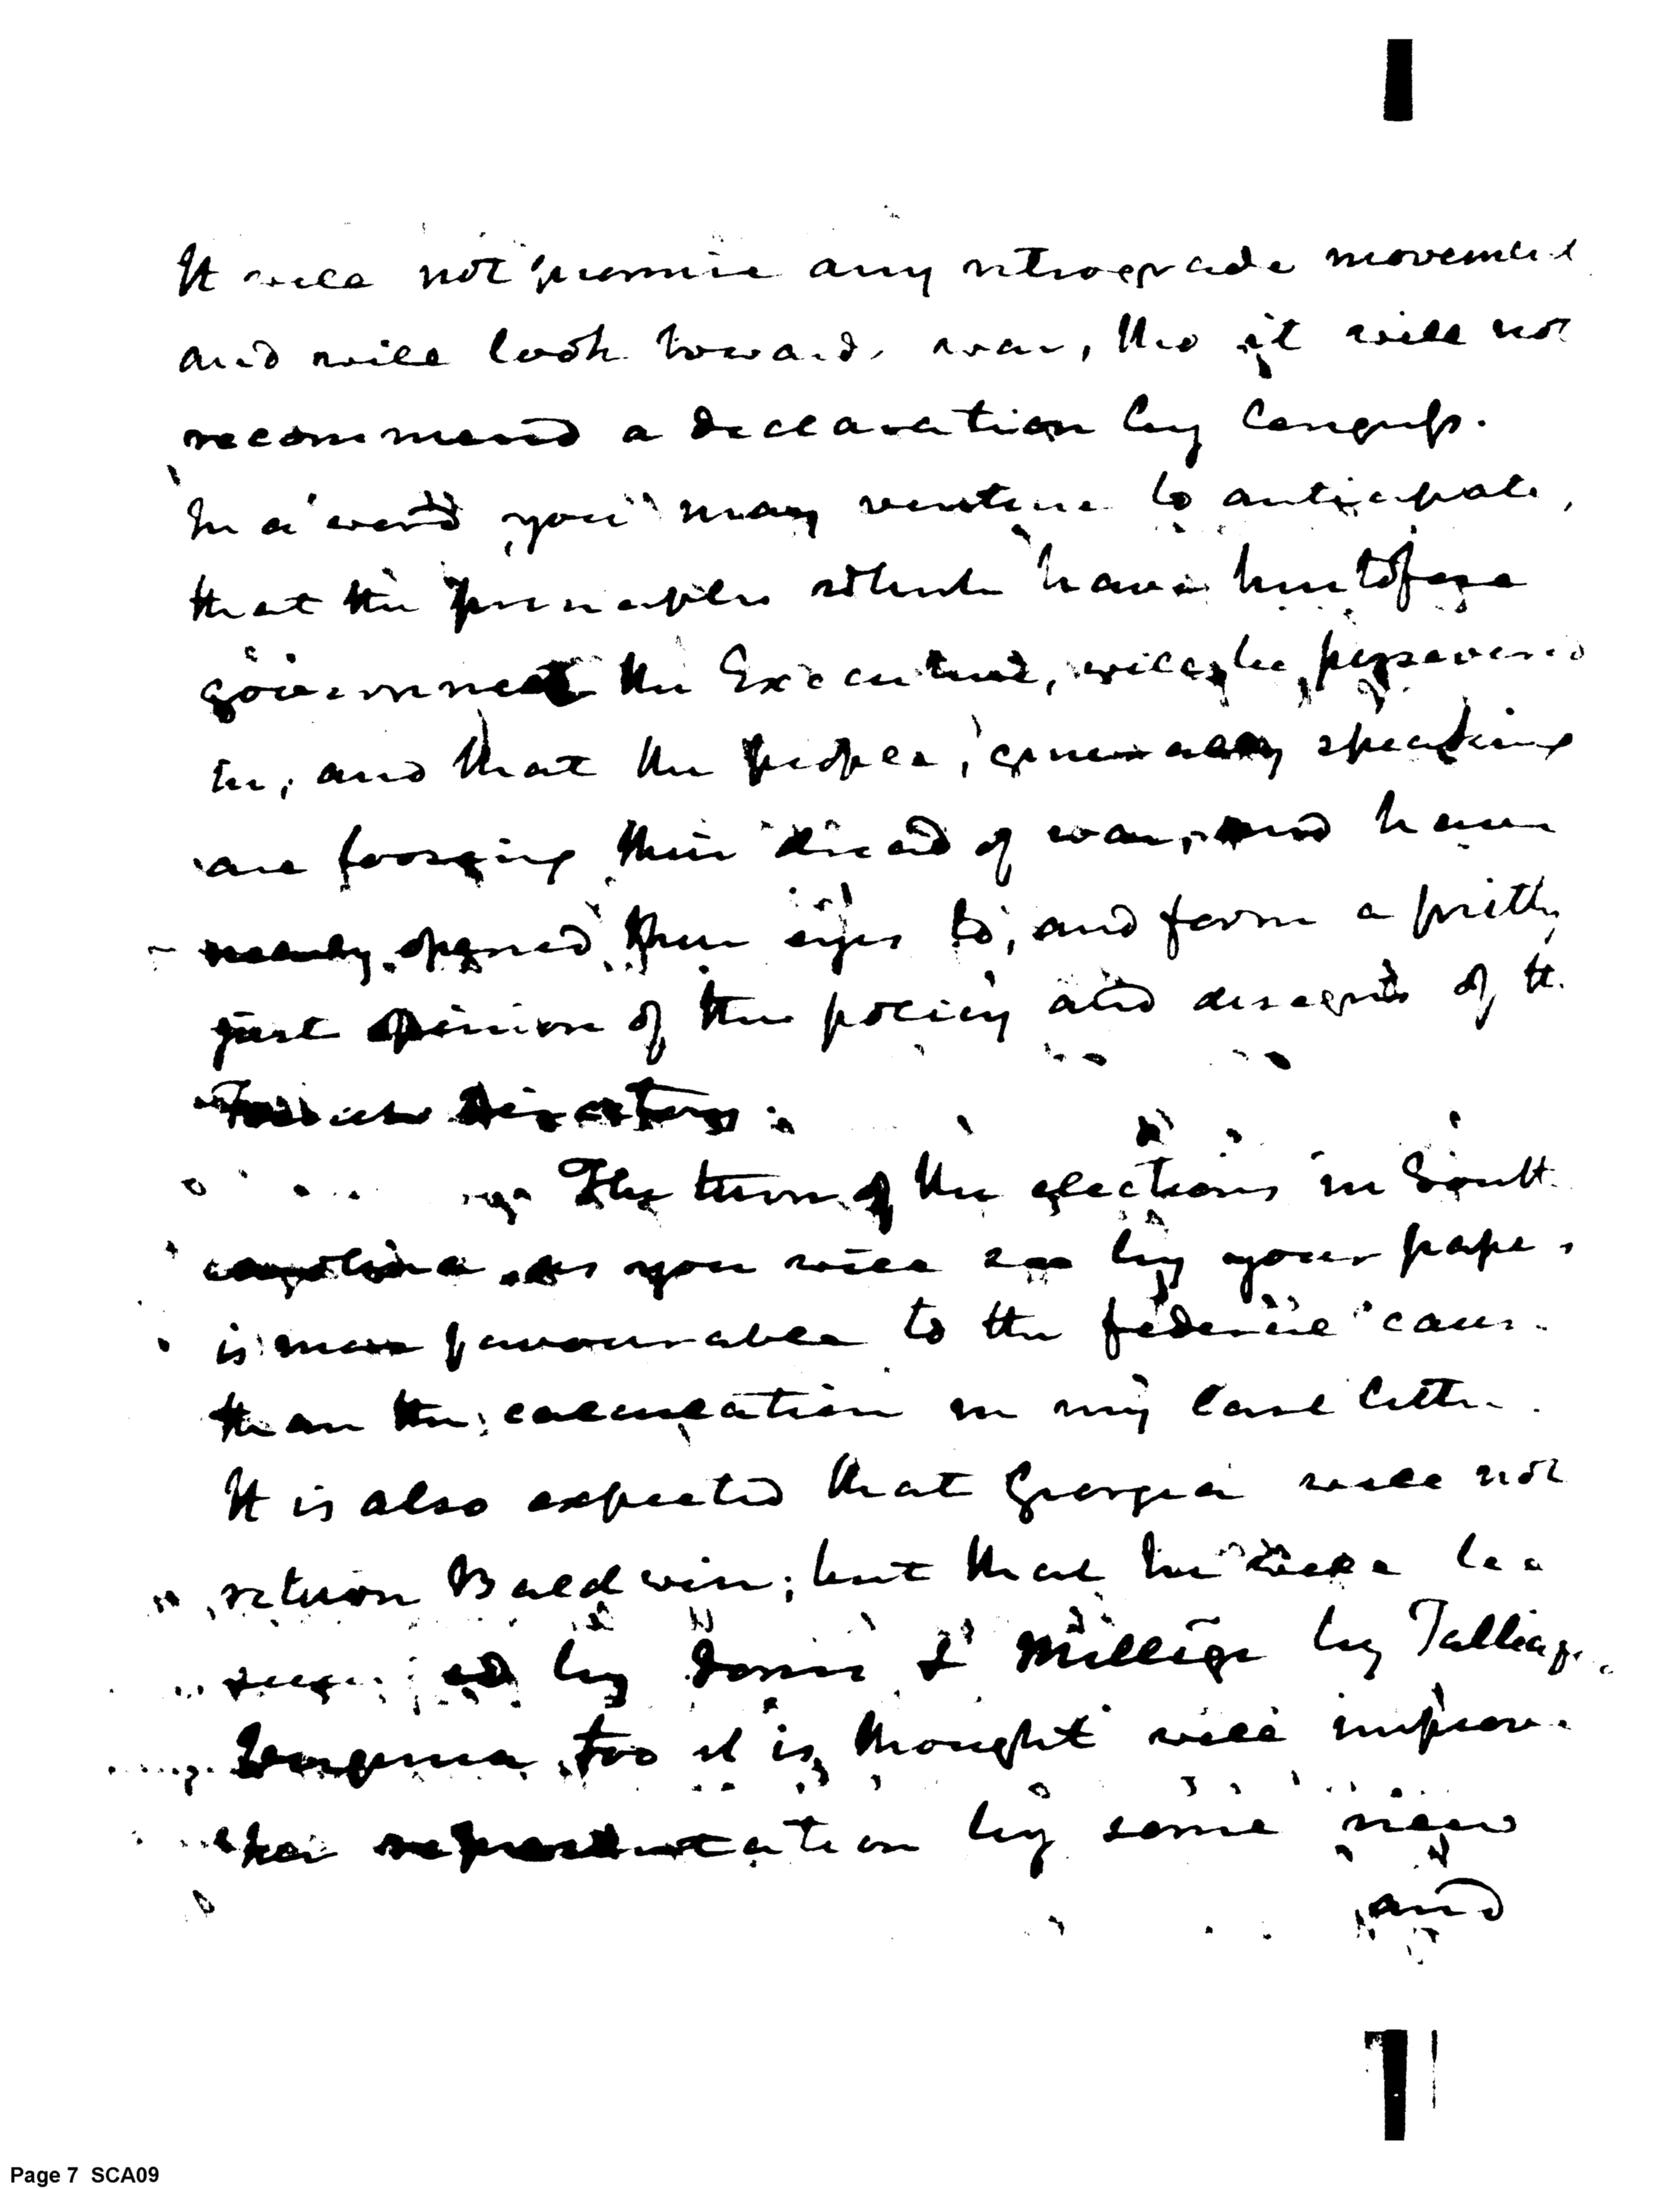 It will not promise any retrograde movement
and will look towards war, tho it will not
recommend a declaration by Congress.
In a word you may venture to anticipate,
that the principles which have heretofore
governned the Executive, will be persevered
in, and that the people, generally speaking
are foorging their dread of war, and have
nearly opened their eyes to, and form a pretty
just opinion of the policy and designs of the
French Directory.
The turn of the elections in South
carolina as you will see by your papers
is more favourable to the federal cause
than the calculation in my last letter.
It is also expected that Georgia will not
return Baldwin; but that he will be
by Jones & Millige by Talliaf
Virginia too it is thought will improve
her representation by some new
and
Page 7 SCA09